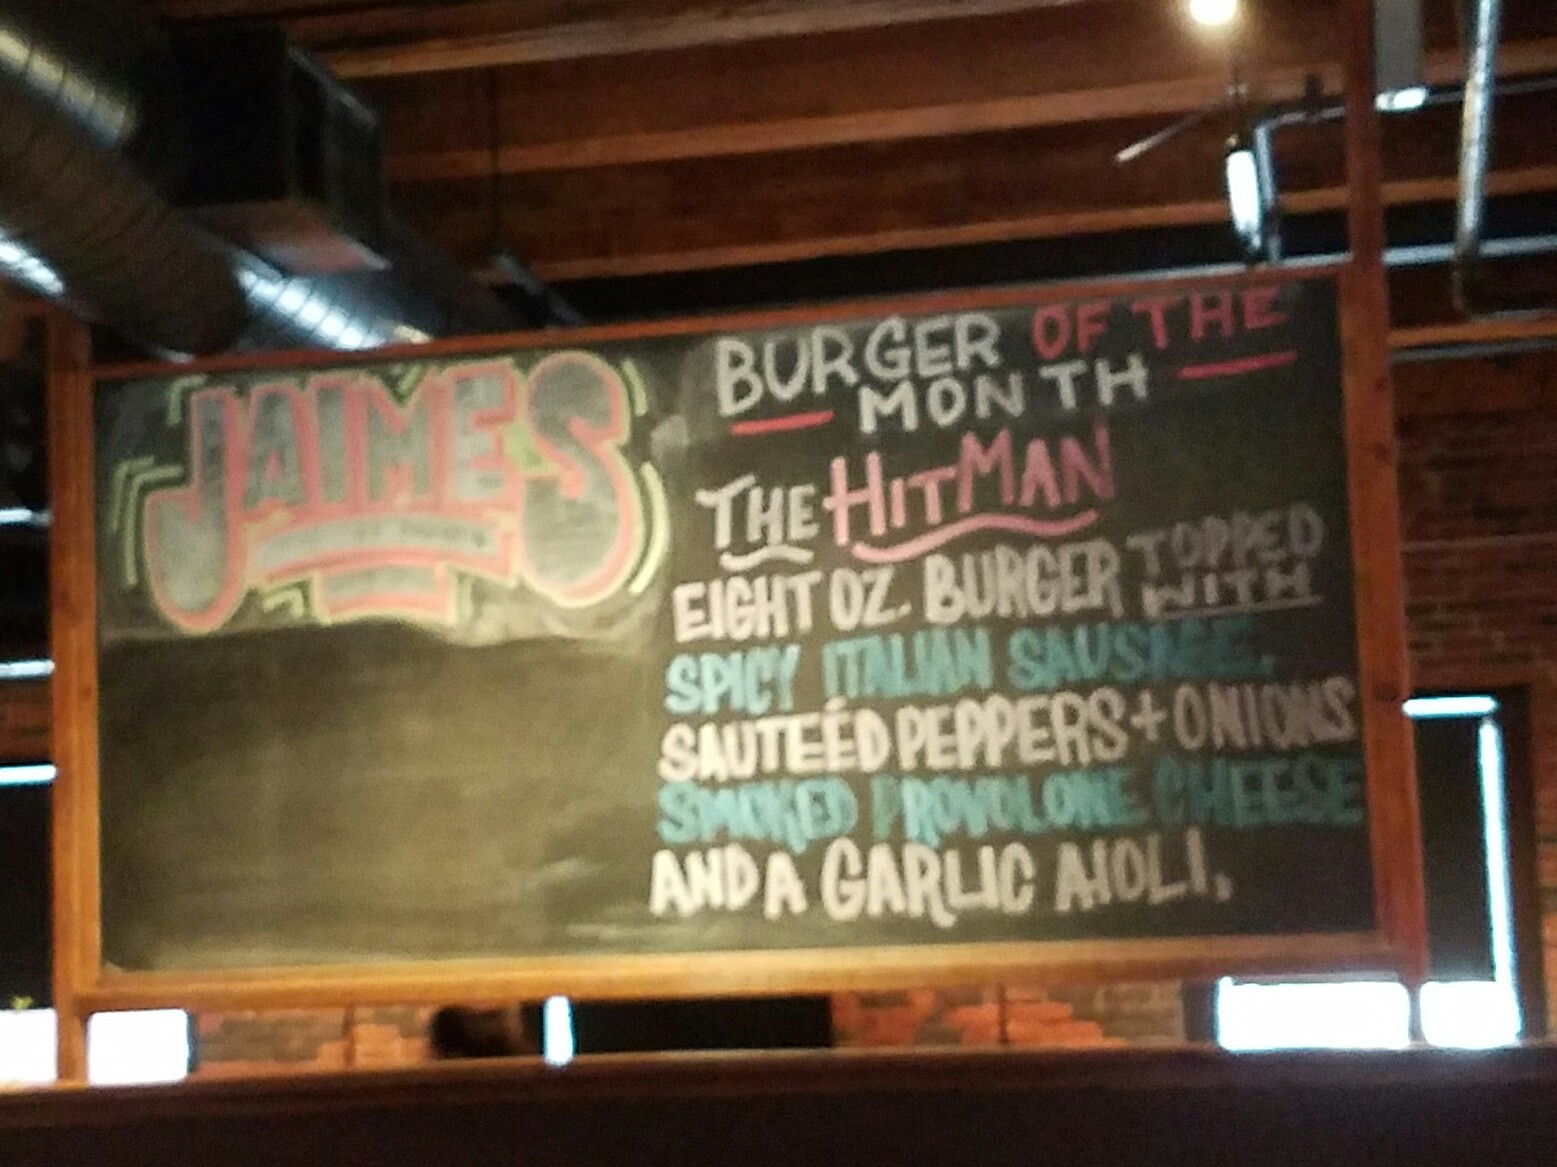 JAIMES
BURGER OF THE
MONTH
THE HITMAN
EIGHT OZ. BURGER TOPPED
WITH
SPICY ITALIAN SAUSAGE.
SAUTEÉD PEPPERS + ONIONS
SMOKED PROVOLONE CHEESE
AND A GARLIC AIOLI.